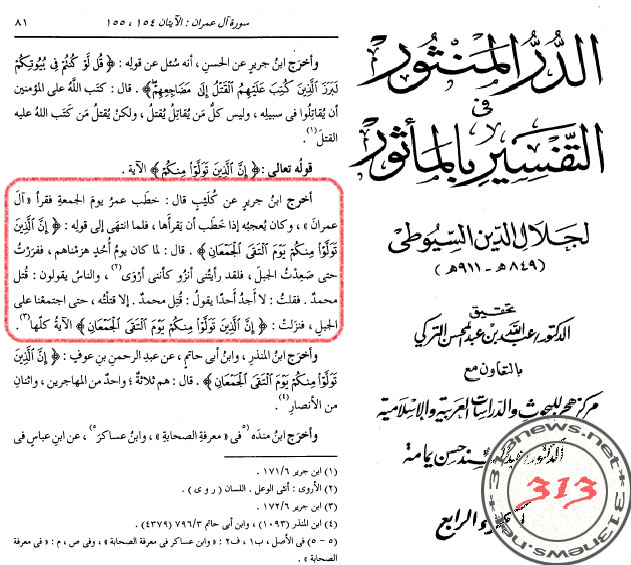 الدُّرُّ المَنْثُور
فى
التَّفْسِيرِ بِالْمَأْثُور
لجلال الدين السِّيُوطى
(٨٤٩هـ - ٩١١هـ)
تحقيق
الدكتور/عبد الله بن عبد المحسن التركي
بالتعاون مع
مركز هجر للبحوث والدراسات العربية والإسلامية
حسن يمامة
الرابع
313
313news.net
سورة آل عمران : الآيتان ١٥٤ ، ١٥٥
٨١
وأخرَج ابنُ جريرٍ عن الحسنِ ، أنه سُئل عن قولِه : ﴿ قُل لَّوْ كُنتُمْ فِى بُيُوتِكُمْ
لَبَرَزَ ٱلَّذِينَ كُتِبَ عَلَيْهِمُ ٱلْقَتْلُ إِلَىٰ مَضَاجِعِهِمْ ﴾ . قال : كتَب اللَّهُ على المؤمنين
أن يُقاتِلُوا فى سبيلِه ، وليس كلُّ مَن يُقاتِلُ يُقتَلُ ، ولكنْ يُقتلُ مَن كتَب اللهُ عليه
القتلَ (١) .
قولُه تعالى : ﴿ إِنَّ ٱلَّذِينَ تَوَلَّوْا۟ مِنكُمْ ﴾ الآية .
أخرَج ابنُ جريرٍ عن كُلَيْبٍ قال : خطَب عمرُ يومَ الجمعةِ فقرأ « آلَ
عمرانَ » ، وكان يُعجبُه إذا خطَب أن يَقرأَها ، فلما انتهَى إلى قولِه : ﴿ إِنَّ ٱلَّذِينَ
تَوَلَّوْا۟ مِنكُمْ يَوْمَ ٱلْتَقَى ٱلْجَمْعَانِ ﴾ . قال : لما كان يومُ أُحُدٍ هزمْناهم ، ففرَرْتُ
حتى صَعِدْتُ الجبلَ ، فلقد رأيتُنى أنزُو كأننى أَرْوَى (٢) ، والناسُ يقولون : قُتل
محمدٌ . فقلتُ : لا أجدُ أحدًا يقولُ : قُتِل محمدٌ . إلا قتلتُه ، حتى اجتمَعْنا على
الجبلِ ، فنزَلتْ : ﴿ إِنَّ ٱلَّذِينَ تَوَلَّوْا۟ مِنكُمْ يَوْمَ ٱلْتَقَى ٱلْجَمْعَانِ ﴾ الآيةُ كلُّها (٣) .
وأخرَج ابنُ المنذرِ ، وابنُ أبى حاتمٍ ، عن عبدِ الرحمنِ بنِ عوفٍ : ﴿ إِنَّ ٱلَّذِينَ
تَوَلَّوْا۟ مِنكُمْ يَوْمَ ٱلْتَقَى ٱلْجَمْعَانِ ﴾ . قال : هم ثلاثةٌ ؛ واحدٌ من المهاجرين ، واثنانِ
من الأنصارِ (٤) .
وأخرَج ابنُ منده (٥) « فى معرفةِ الصحابةِ » ، وابنُ عساكرَ (٥) ، عن ابنِ عباسٍ فى
(١) ابن جرير ١٧١/٦ .
(٢) الأروى : أنثى الوعل . اللسان ( ر و ى ) .
(٣) ابن جرير ١٧٢/٦ .
(٤) ابن المنذر (١٠٩٣) ، وابن أبى حاتم ٧٩٦/٣ (٤٣٧٩) .
(٥ - ٥) فى الأصل ، ب١ ، ف٢ : « وابن عساكر فى معرفة الصحابة » ، وفى ص ، م : « فى معرفة
الصحابة » .